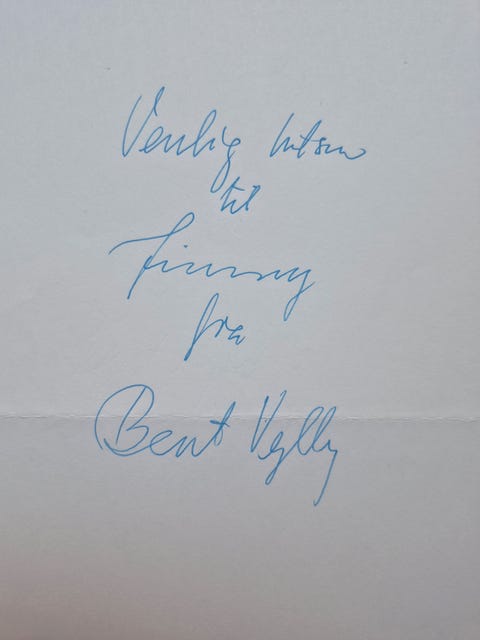 Venlig hilsen
til
Jimmy
fra
Bent